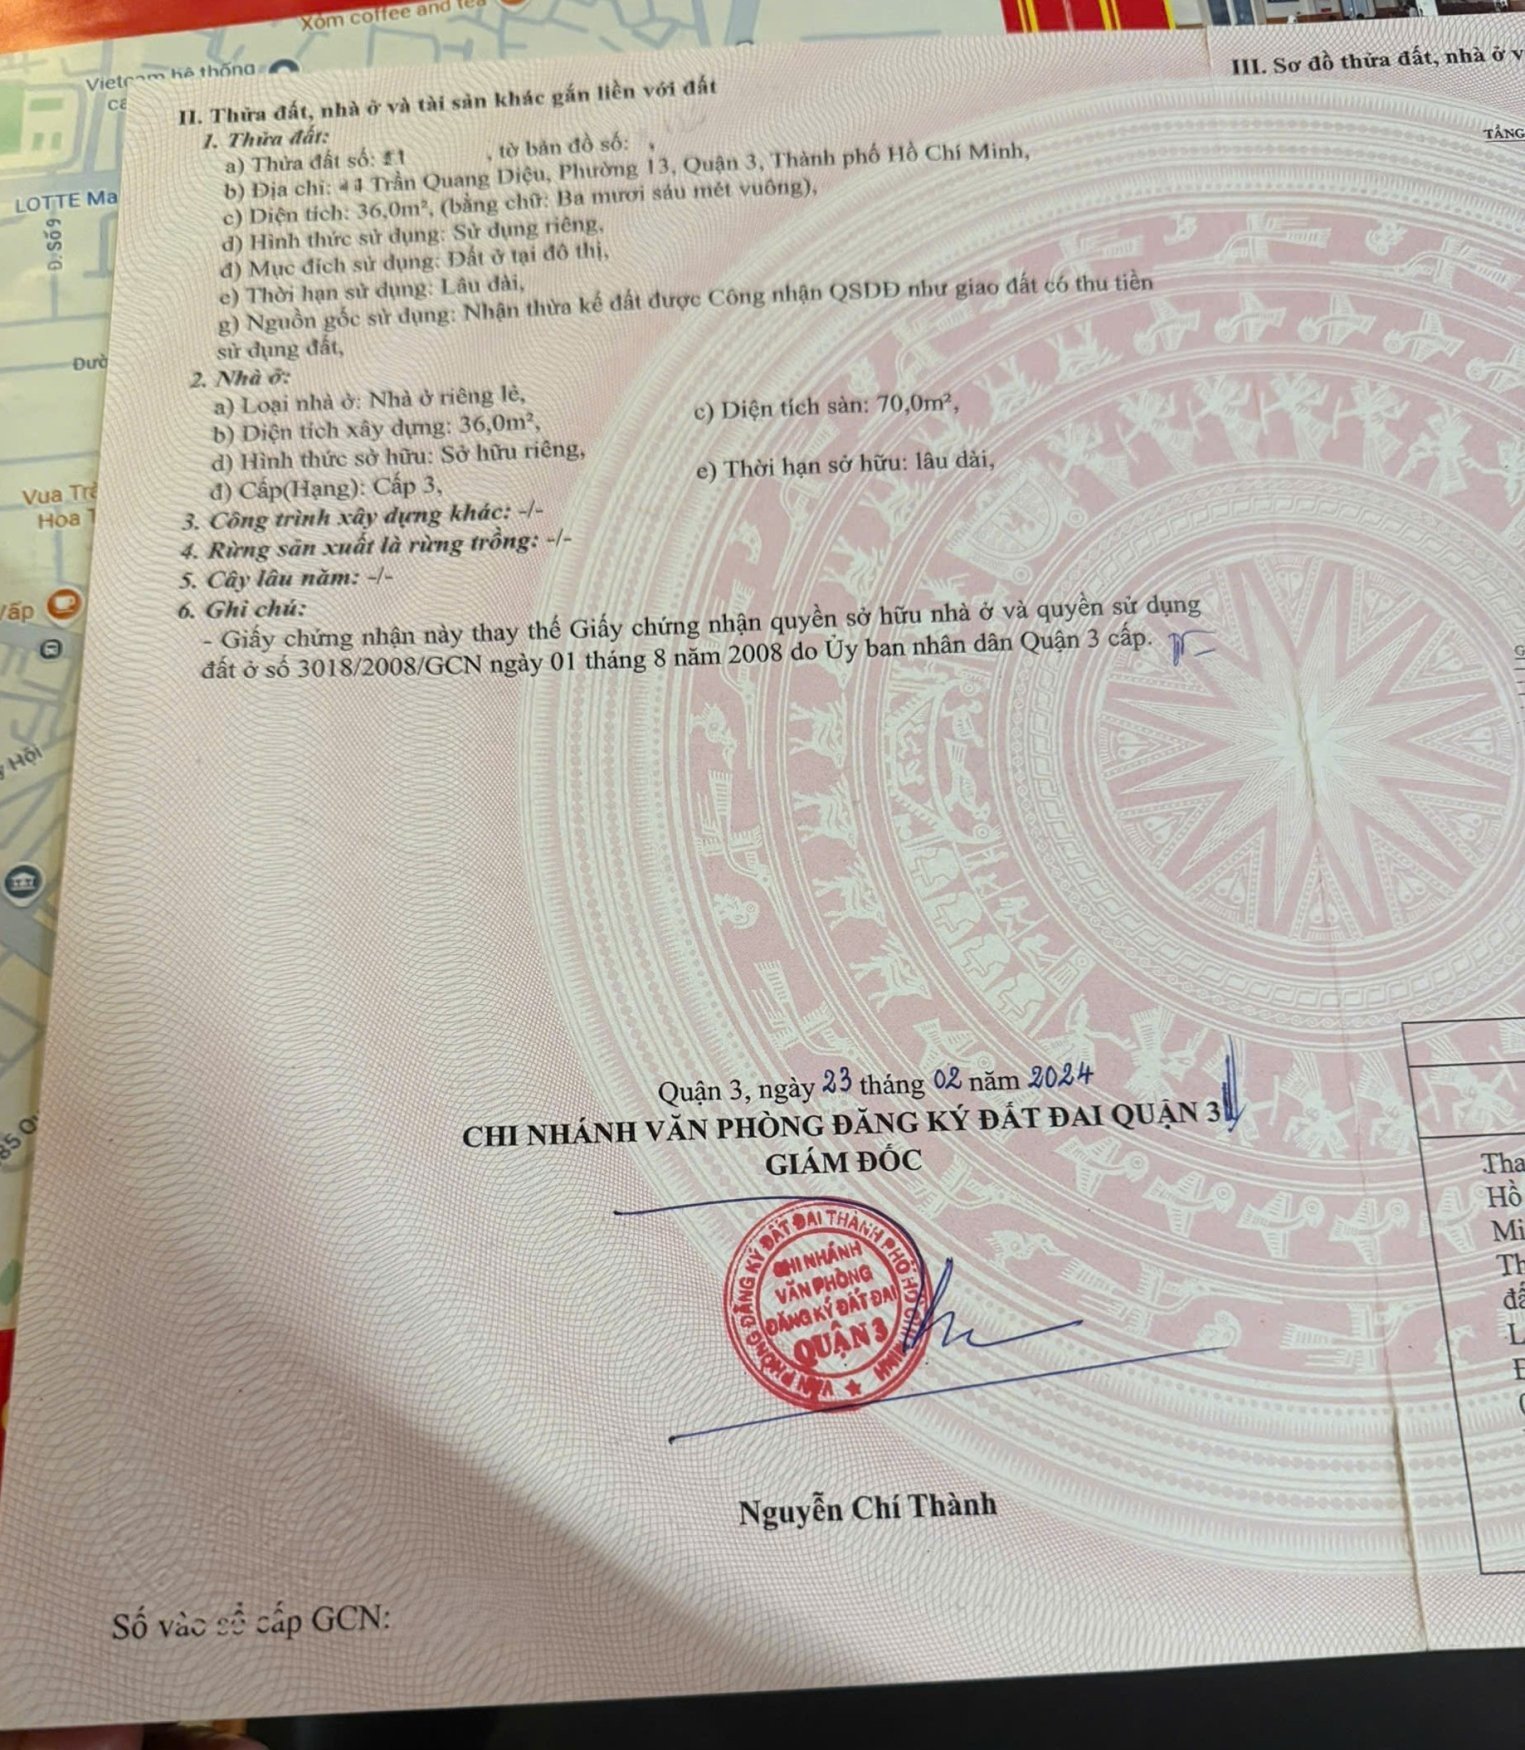 Xóm coffee and tea
hệ thống
LOTTE Ma
Đ. Số 9
Đườ
Vua Trà
Hoa T
Vấp
Hội
II. Thửa đất, nhà ở và tài sản khác gắn liền với đất
1. Thửa đất:
a) Thửa đất số: , tờ bản đồ số: ,
b) Địa chỉ: Trần Quang Diệu, Phường 13, Quận 3, Thành phố Hồ Chí Minh,
c) Diện tích: 36,0m², (bằng chữ: Ba mươi sáu mét vuông),
d) Hình thức sử dụng: Sử dụng riêng,
đ) Mục đích sử dụng: Đất ở tại đô thị,
e) Thời hạn sử dụng: Lâu dài,
g) Nguồn gốc sử dụng: Nhận thừa kế đất được Công nhận QSDĐ như giao đất có thu tiền
sử dụng đất,
2. Nhà ở:
a) Loại nhà ở: Nhà ở riêng lẻ,
b) Diện tích xây dựng: 36,0m², c) Diện tích sàn: 70,0m²,
d) Hình thức sở hữu: Sở hữu riêng, e) Thời hạn sở hữu: lâu dài,
đ) Cấp(Hạng): Cấp 3,
3. Công trình xây dựng khác: -/-
4. Rừng sản xuất là rừng trồng: -/-
5. Cây lâu năm: -/-
6. Ghi chú:
- Giấy chứng nhận này thay thế Giấy chứng nhận quyền sở hữu nhà ở và quyền sử dụng
đất ở số 3018/2008/GCN ngày 01 tháng 8 năm 2008 do Ủy ban nhân dân Quận 3 cấp.
Quận 3, ngày 23 tháng 02 năm 2024
CHI NHÁNH VĂN PHÒNG ĐĂNG KÝ ĐẤT ĐAI QUẬN 3
GIÁM ĐỐC
VĂN PHÒNG ĐĂNG KÝ ĐẤT ĐAI THÀNH PHỐ HỒ CHÍ MINH
CHI NHÁNH
VĂN PHÒNG
ĐĂNG KÝ ĐẤT ĐAI
QUẬN 3
Nguyễn Chí Thành
Số vào sổ cấp GCN:
III. Sơ đồ thửa đất, nhà ở v
TẦNG
Tha
Hồ
Mi
Th
đấ
L